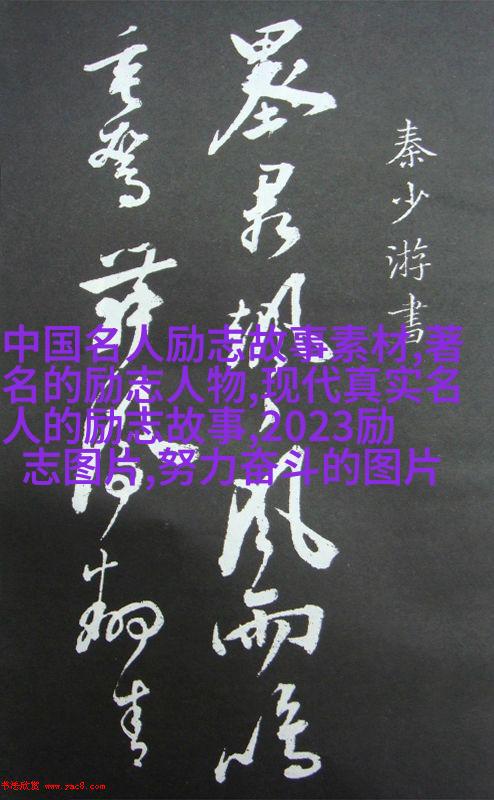 秦少游書
墨君颯々風雨鳴
舞翻青
中国名人励志故事素材,著
名的励志人物,现代真实名
人的励志故事,2023励
志图片,努力奋斗的图片
书法欣赏 www.yac8.com